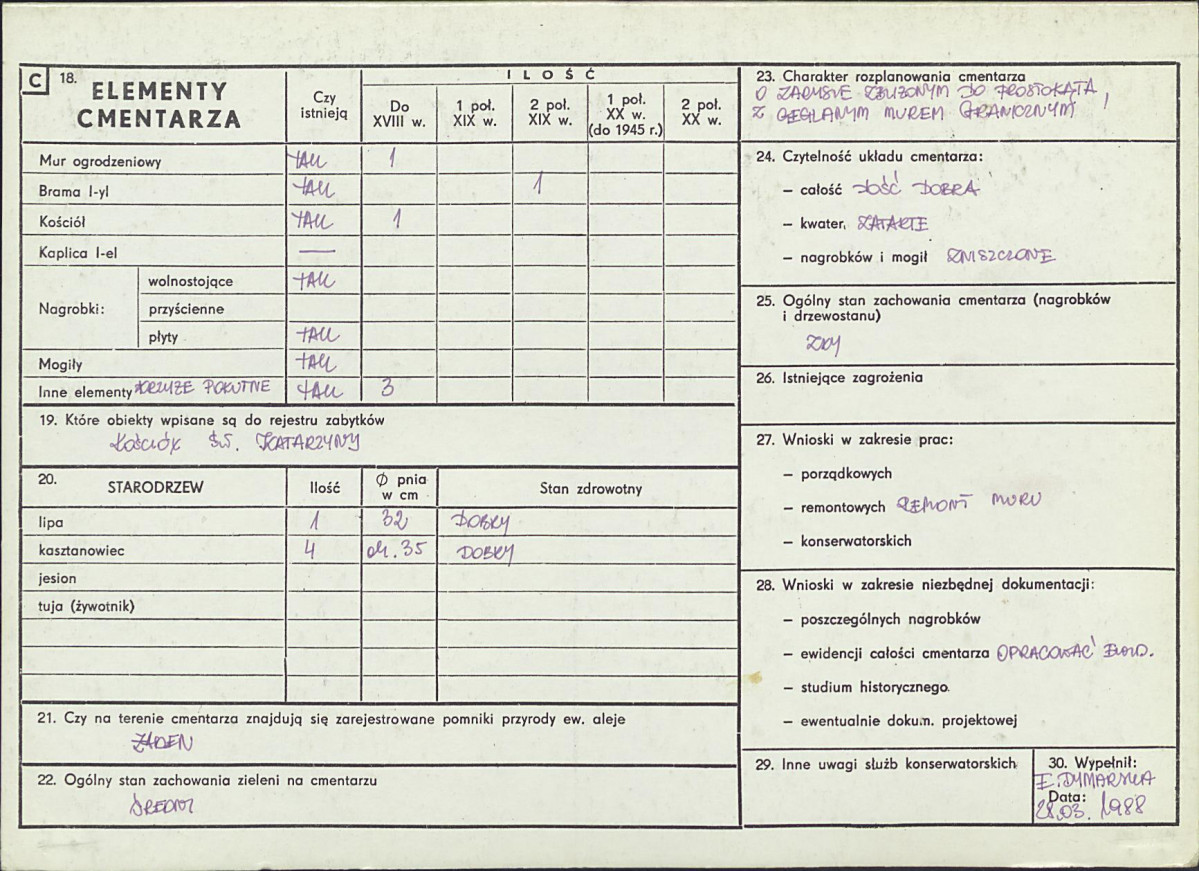 C 18. ELEMENTY CMENTARZA
Czy istnieją
ILOŚĆ
Do XVIII w.
1 poł. XIX w.
2 poł. XIX w.
1 poł. XX w. (do 1945 r.)
2 poł. XX w.
Mur ogrodzeniowy TAK 1
Brama l-yl TAK 1
Kościół TAK 1
Kaplica l-el —
Nagrobki:
wolnostojące TAK
przyścienne
płyty TAK
Mogiły TAK
Inne elementy KRZYŻE POKUTNE TAK 3
19. Które obiekty wpisane są do rejestru zabytków
KOŚCIÓŁ ŚW. KATARZYNY
20. STARODRZEW Ilość Ø pnia w cm Stan zdrowotny
lipa 1 32 DOBRY
kasztanowiec 4 ok. 35 DOBRY
jesion
tuja (żywotnik)
21. Czy na terenie cmentarza znajdują się zarejestrowane pomniki przyrody ew. aleje
ŻADEN
22. Ogólny stan zachowania zieleni na cmentarzu
ŚREDNI
23. Charakter rozplanowania cmentarza
O ZARYSIE ZBLIŻONYM DO PROSTOKĄTA,
Z CEGLANYM MUREM GRANICZNYM
24. Czytelność układu cmentarza:
– całość DOŚĆ DOBRA
– kwater, ZATARTE
– nagrobków i mogił ZNISZCZONE
25. Ogólny stan zachowania cmentarza (nagrobków
i drzewostanu)
ZŁY
26. Istniejące zagrożenia
27. Wnioski w zakresie prac:
– porządkowych
– remontowych REMONT MURU
– konserwatorskich
28. Wnioski w zakresie niezbędnej dokumentacji:
– poszczególnych nagrobków
– ewidencji całości cmentarza OPRACOWAĆ EWID.
– studium historycznego.
– ewentualnie dokum. projektowej
29. Inne uwagi służb konserwatorskich
30. Wypełnił:
E. DYMARSKA
Data:
28.03. 1988